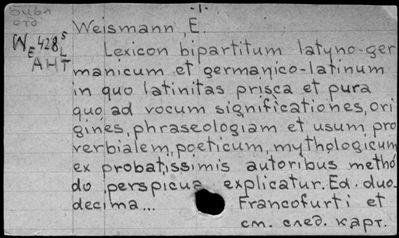 -1-
Weismann, E.
W E 428 S L
АНТ
Lexicon bipartitum latyno-ger
manicum et germanico-latinum
in quo latinitas prisca et pura
quo ad vocum significationes, ori
gines, phraseologiam et usum, pro
verbialem, poeticum, mythologicum
ex probatissimis autoribus metho
do perspicua explicatur. Ed. duo
decima... Francofurti et
см. след. карт.